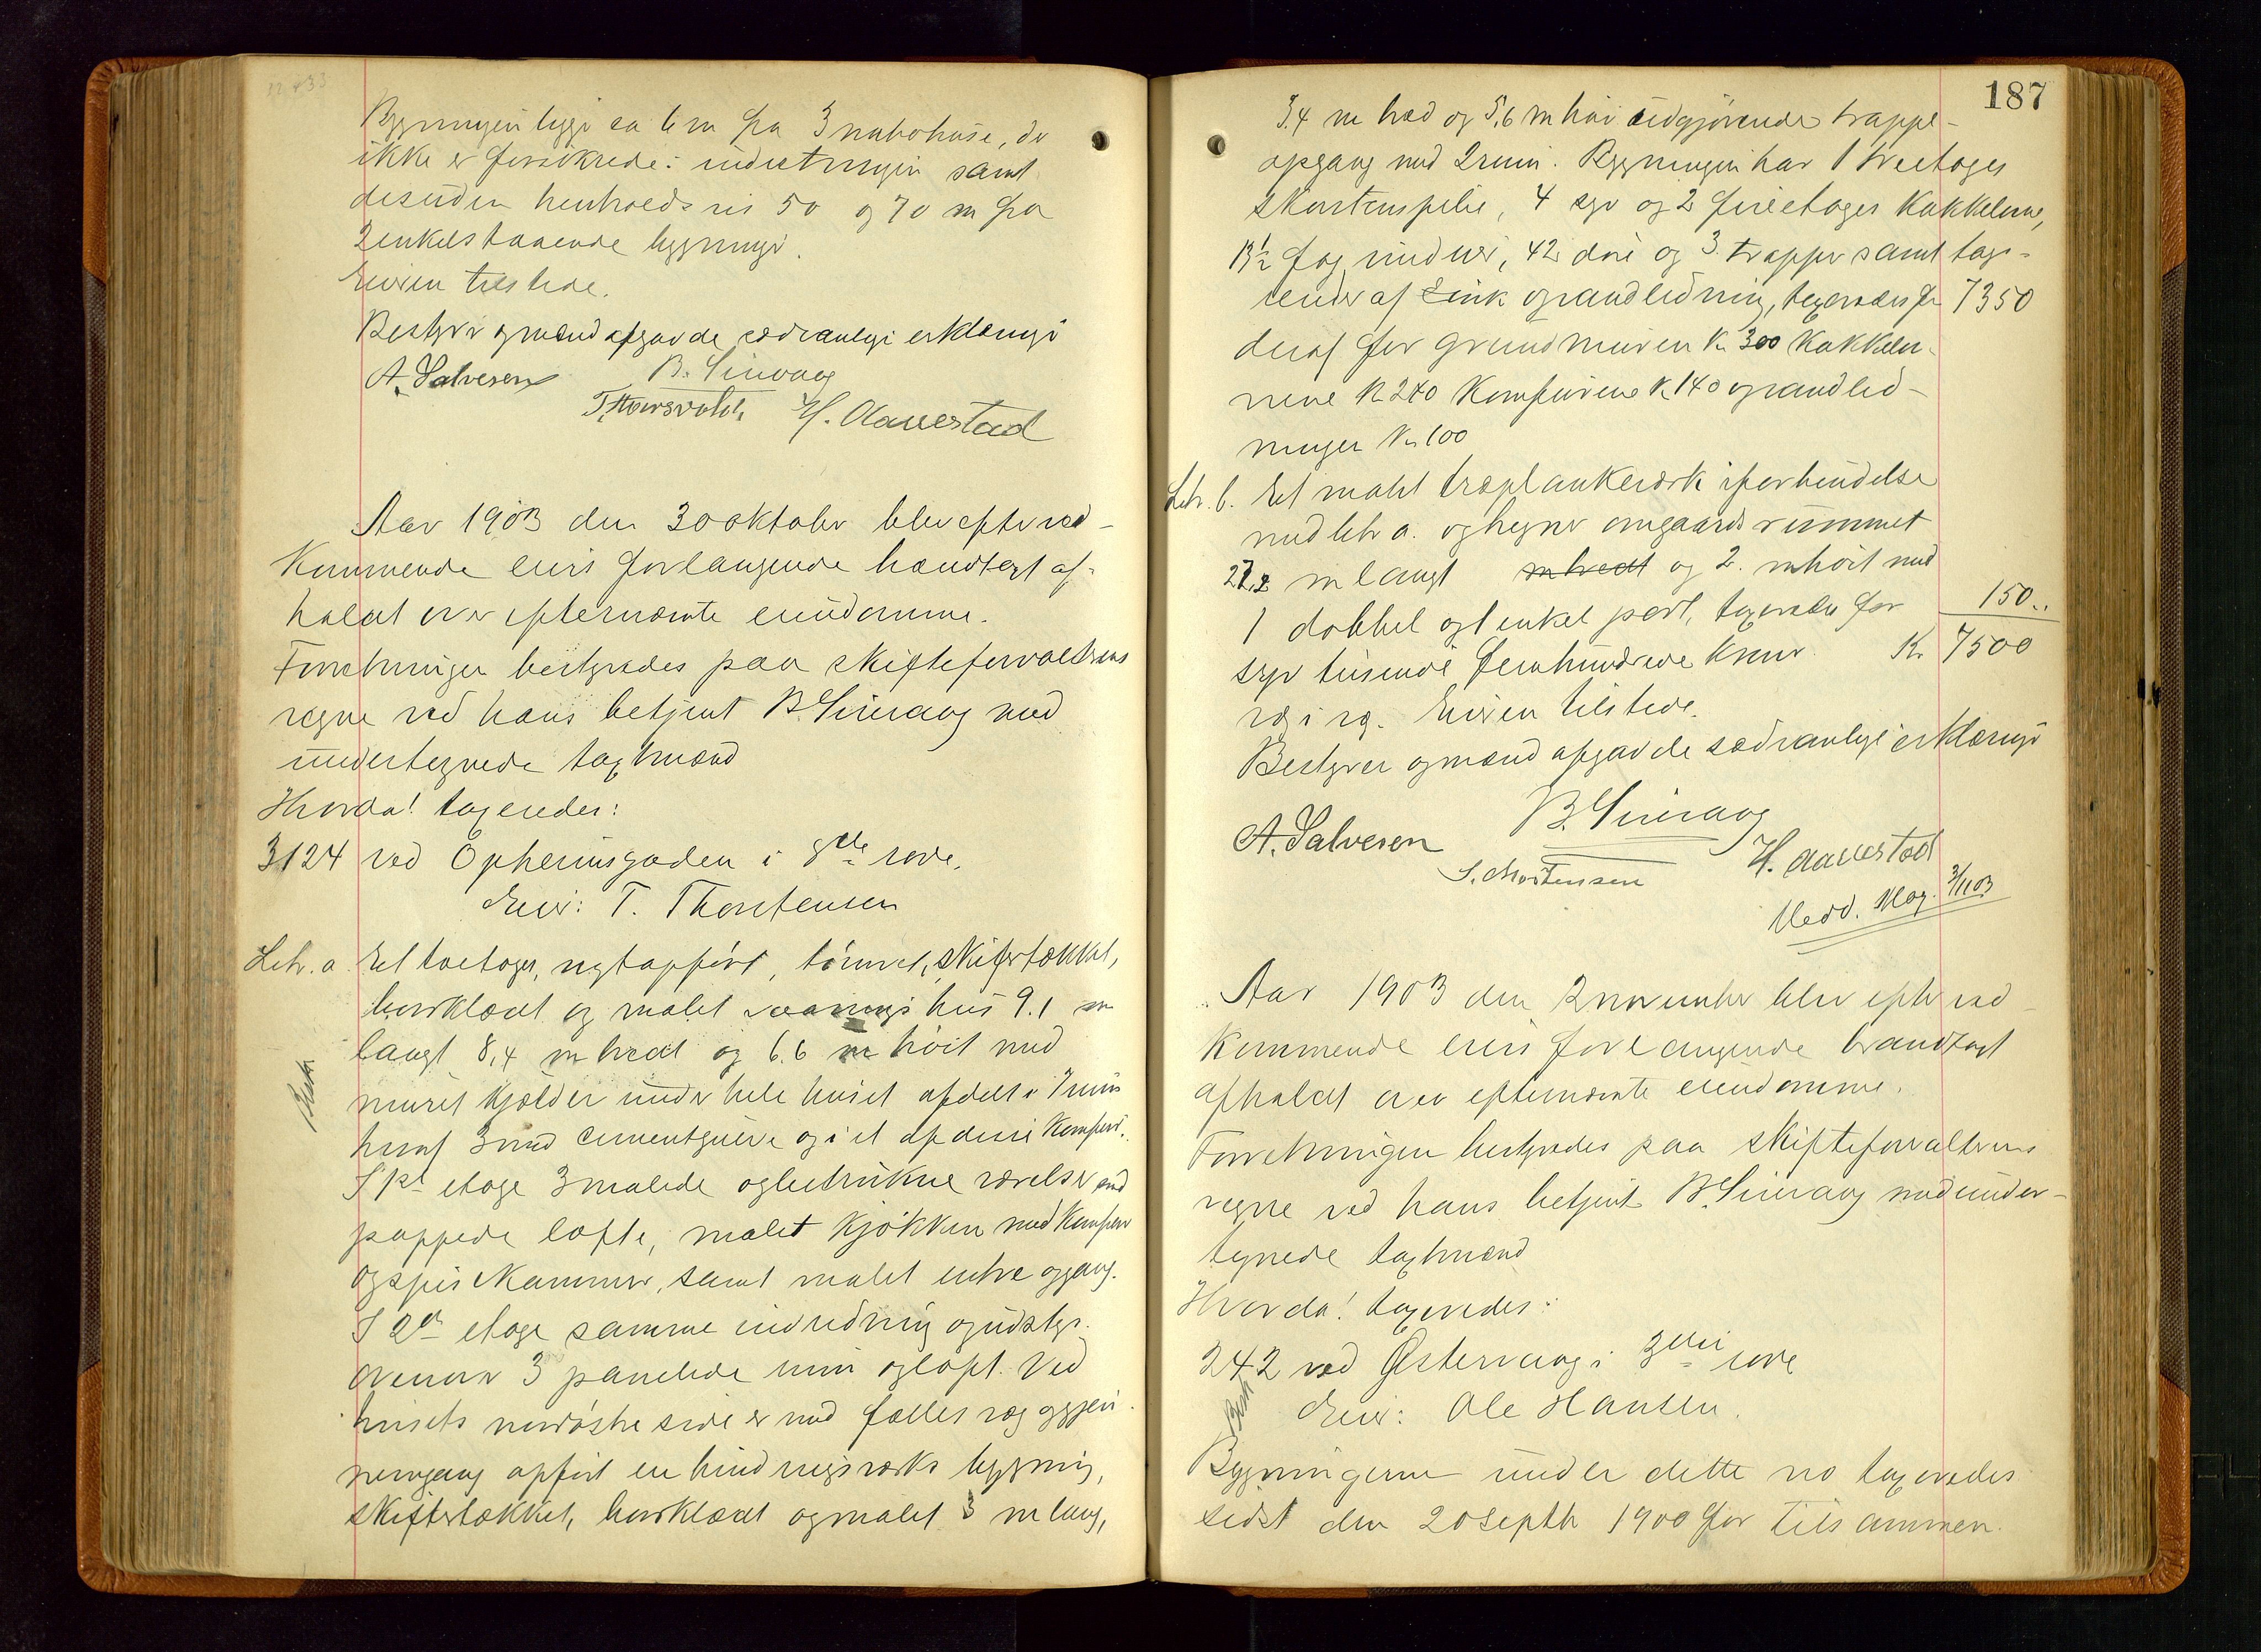 Bygningen ligger ca 6 m fra 3 nabohuse, der
ikke er forsikrede i indretningen samt
desuden henholdsvis 50 og 70 m fra
2 enkeltstaaende bygninger.
Eieren tilstede.
Bestyrer og mænd afgav de sædvanlige erklæringer
A. Salvesen B. Simvaag
T. Thorsvold H. Aauestad
Aar 1903 den 30 oktober blev efter ved-
kommende eiers forlangende brandtaxt af-
holdt over efternævnte eiendomme.
Forretningen bestyredes paa skifteforvalterens
vegne ved hans betjent B. Simvaag med
undertegnede taxtmænd
Hvorda! taxeredes:
3124 ved Opheimsgaden i 8de rode.
Eier: T. Thorstensen
Litr. a Et toetages, nytopført, tømret, skifertækket,
bordklædt og malet vaanings hus 9.1 m
langt 8,4 m bredt og 6.6 m høit med
muret kjælder under hele huset afdelt i 7 rum
hvoraf 3 med cementgulve og i et af disse komfur.
I 1ste etage 3 malede og betrukne værelser med
pappede lofte, malet kjøkken med komfur
og spiskammer, samt malet entre og gang.
I 2den etage samme indredning og udstyr.
ovenover 3 panelede rum og loft. Ved
husets nordøstre side er med fælles væg og gjen-
nemgang opført en bindingsværks bygning,
skifertækket, bordklædt og malet 3 m lang,
187
3,4 m bred og 5,6 m høi udgjørende trappe-
opgang med 2 rum. Bygningen har 1 treetages
skorstenspibe, 4 syv og 2 fireetages kakkelovne,
13½ fag vinduer, 42 døre og 3 trapper samt tag-
render af zink og vandledning, taxeredes for 7350
deraf for grundmuren Kr 300 kakkelov-
nene Kr 240 komfurene Kr 140 og vandled-
ninger Kr 100
Litr. b. Et malet træplankeværk i forbindelse
med litr a. og hegner om gaardsrummet
27,2 m langt m bredt og 2. m høit med
1 dobbel og 1 enkel port, taxeredes for 150..
syv tusende femhundrede kroner. Kr 7500
Eieren tilstede.
Bestyrer og mænd afgav de sædvanlige erklæringer
A. Salvesen B. Simvaag
S. Mortensen H. Aauestad
Medd. Mag. 3/11 03
Aar 1903 den 2 november blev efter ved-
kommende eiers forlangende brandtaxt
afholdt over efternævnte eiendomme.
Forretningen bestyredes paa skifteforvalterens
vegne ved hans betjent B. Simvaag med under-
tegnede taxtmænd
Hvorda! taxeredes:
242 ved Østervaag i 3die rode
Eier: Ole Hansen.
Bygningerne under dette no taxeredes
sidst den 20 septbr 1900 for tilsammen